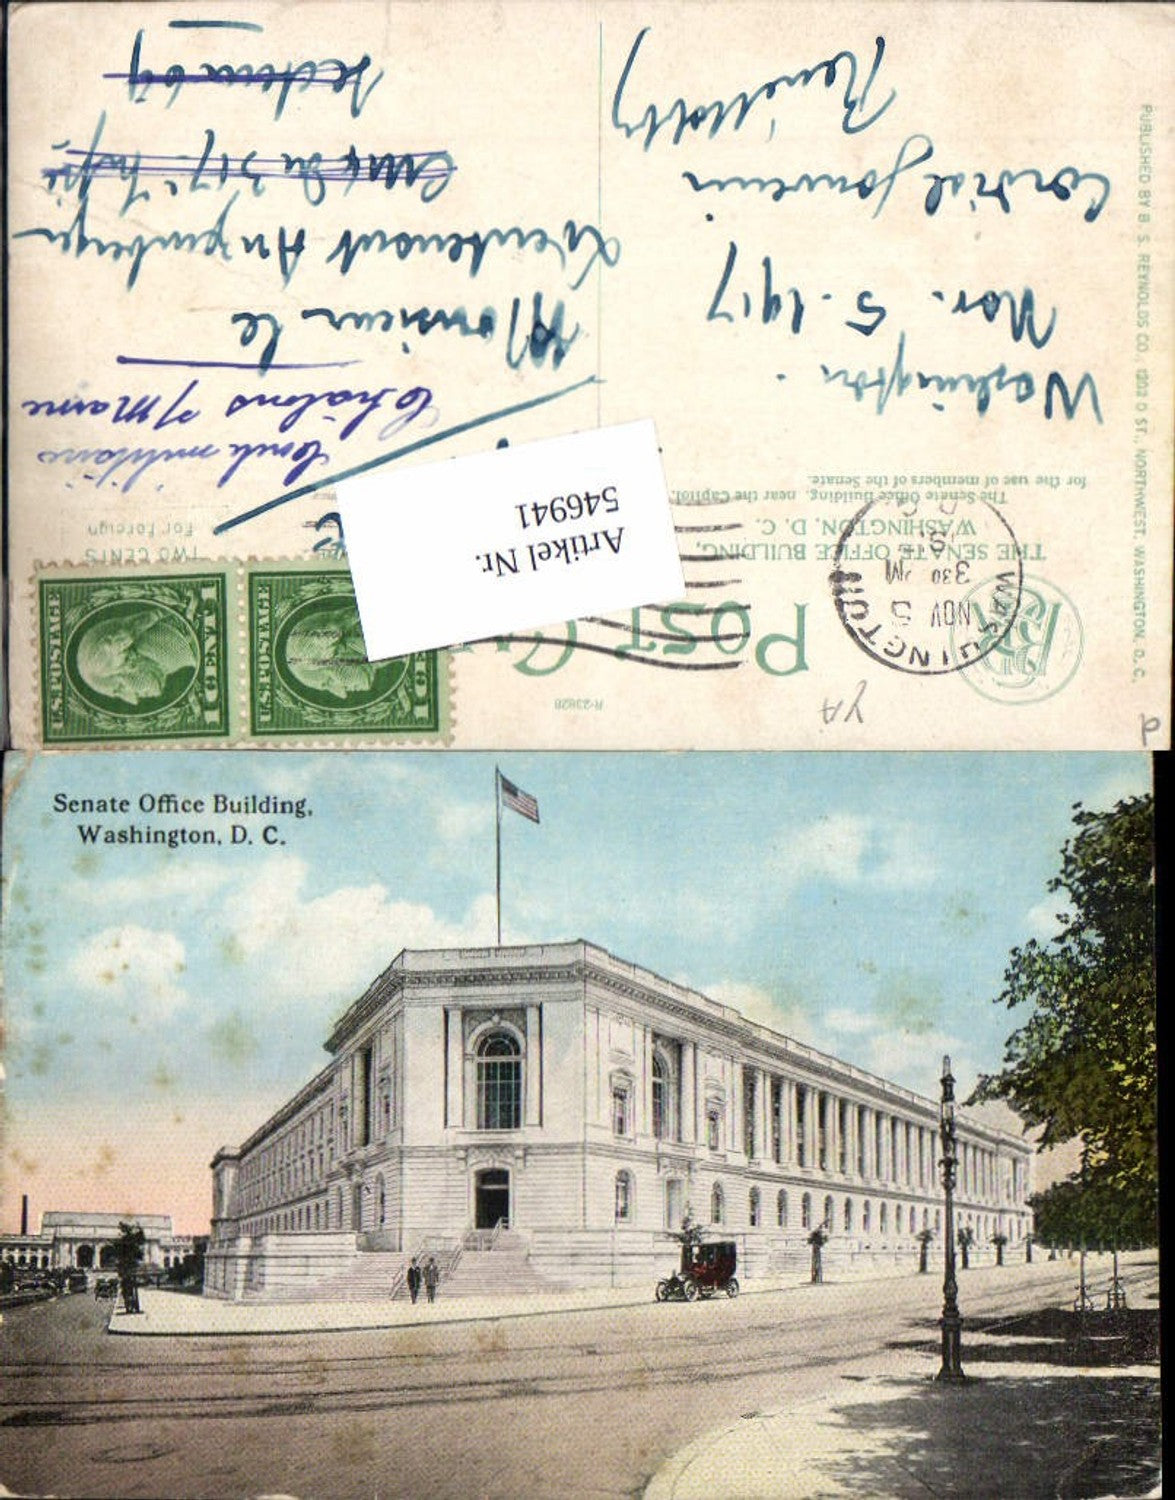 POST
THE SENATE OFFICE BUILDING,
WASHINGTON, D. C.
The Senate Office Building, near the Capitol,
for the use of members of the Senate.
R-23828
YA
WASHINGTON
NOV 5
330 PM
D.C.
U.S. POSTAGE
1 CENT 1
U.S. POSTAGE
1 CENT 1
TWO CENTS
For Foreign
Artikel Nr.
546941
Washington.
Nov. 5. 1917
Cordial souvenir
René
militaire
Châlons s/ Marne
Monsieur le
Lieutenant
du 317e
PUBLISHED BY B. S. REYNOLDS CO., 1202 D ST., NORTHWEST, WASHINGTON, D. C.
Senate Office Building,
Washington, D. C.